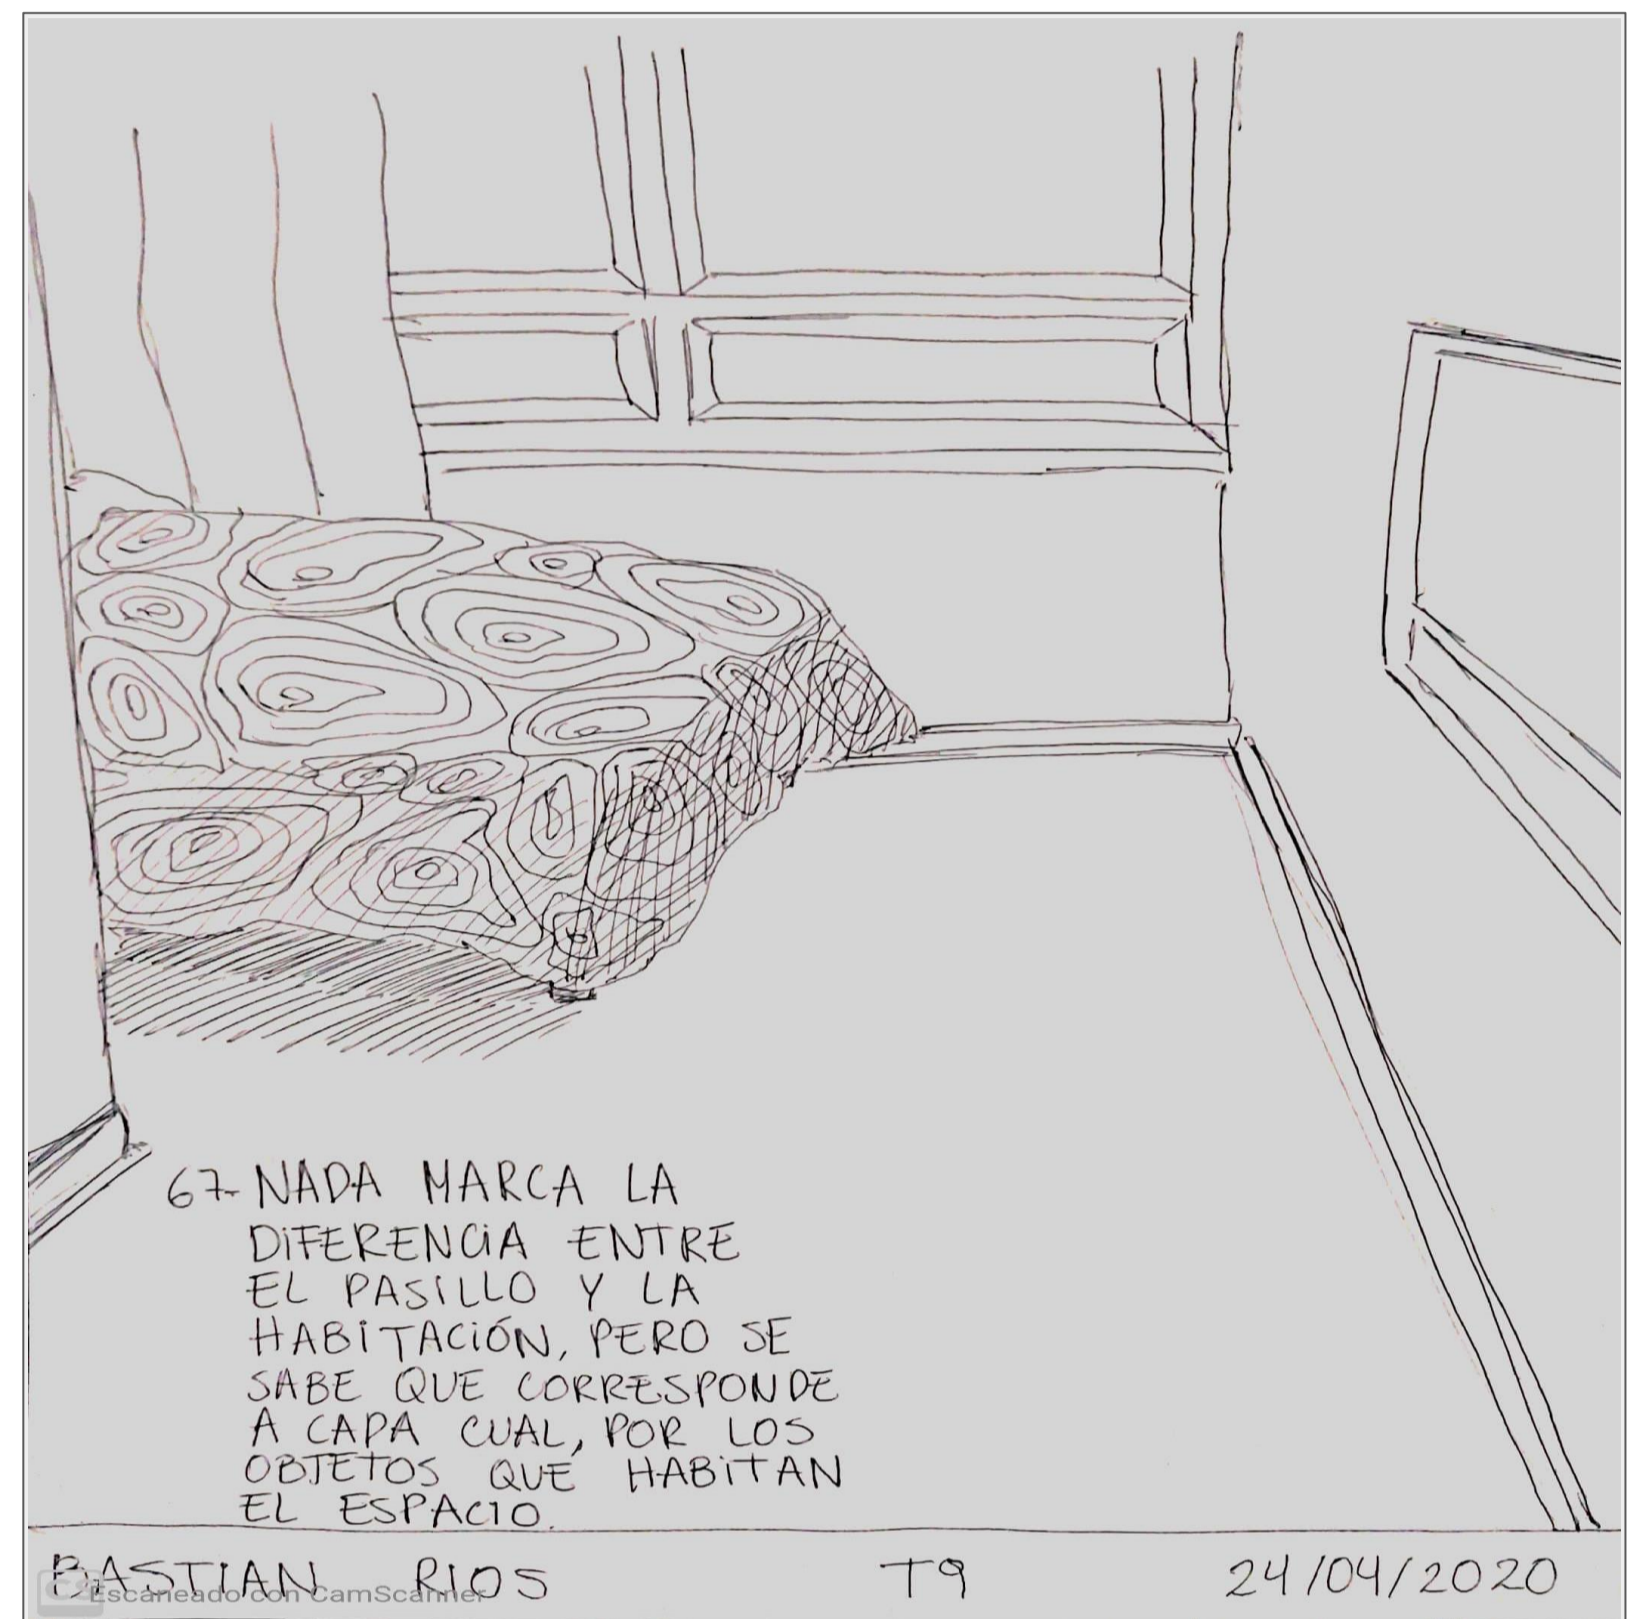 67.- NADA MARCA LA
DIFERENCIA ENTRE
EL PASILLO Y LA
HABITACIÓN, PERO SE
SABE QUE CORRESPONDE
A CAPA CUAL, POR LOS
OBJETOS QUE HABITAN
EL ESPACIO.
BASTIAN RIOS T9 24/04/2020
CS Escaneado con CamScanner